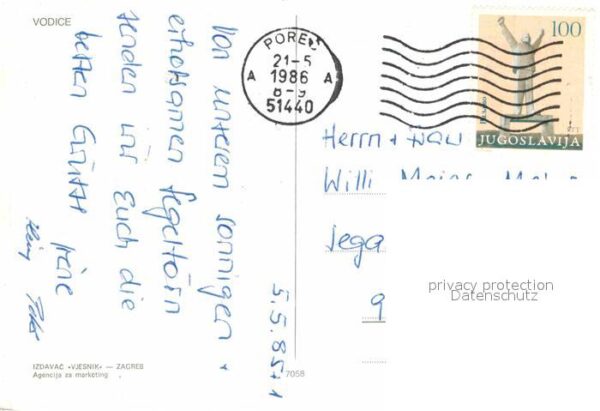 VODICE
Von unserem sonnigen +
erholsamen Segeltörn
senden wir Euch die
besten Grüße Irene
Peter
5.5.85+1
IZDAVAČ «VJESNIK» — ZAGREB
Agencija za marketing
7058
POREČ
21-5
A 1986 A
8-9
51440
100
PTT
JUGOSLAVIJA
Herrn + Frau
Willi
Sega
9
privacy protection
Datenschutz